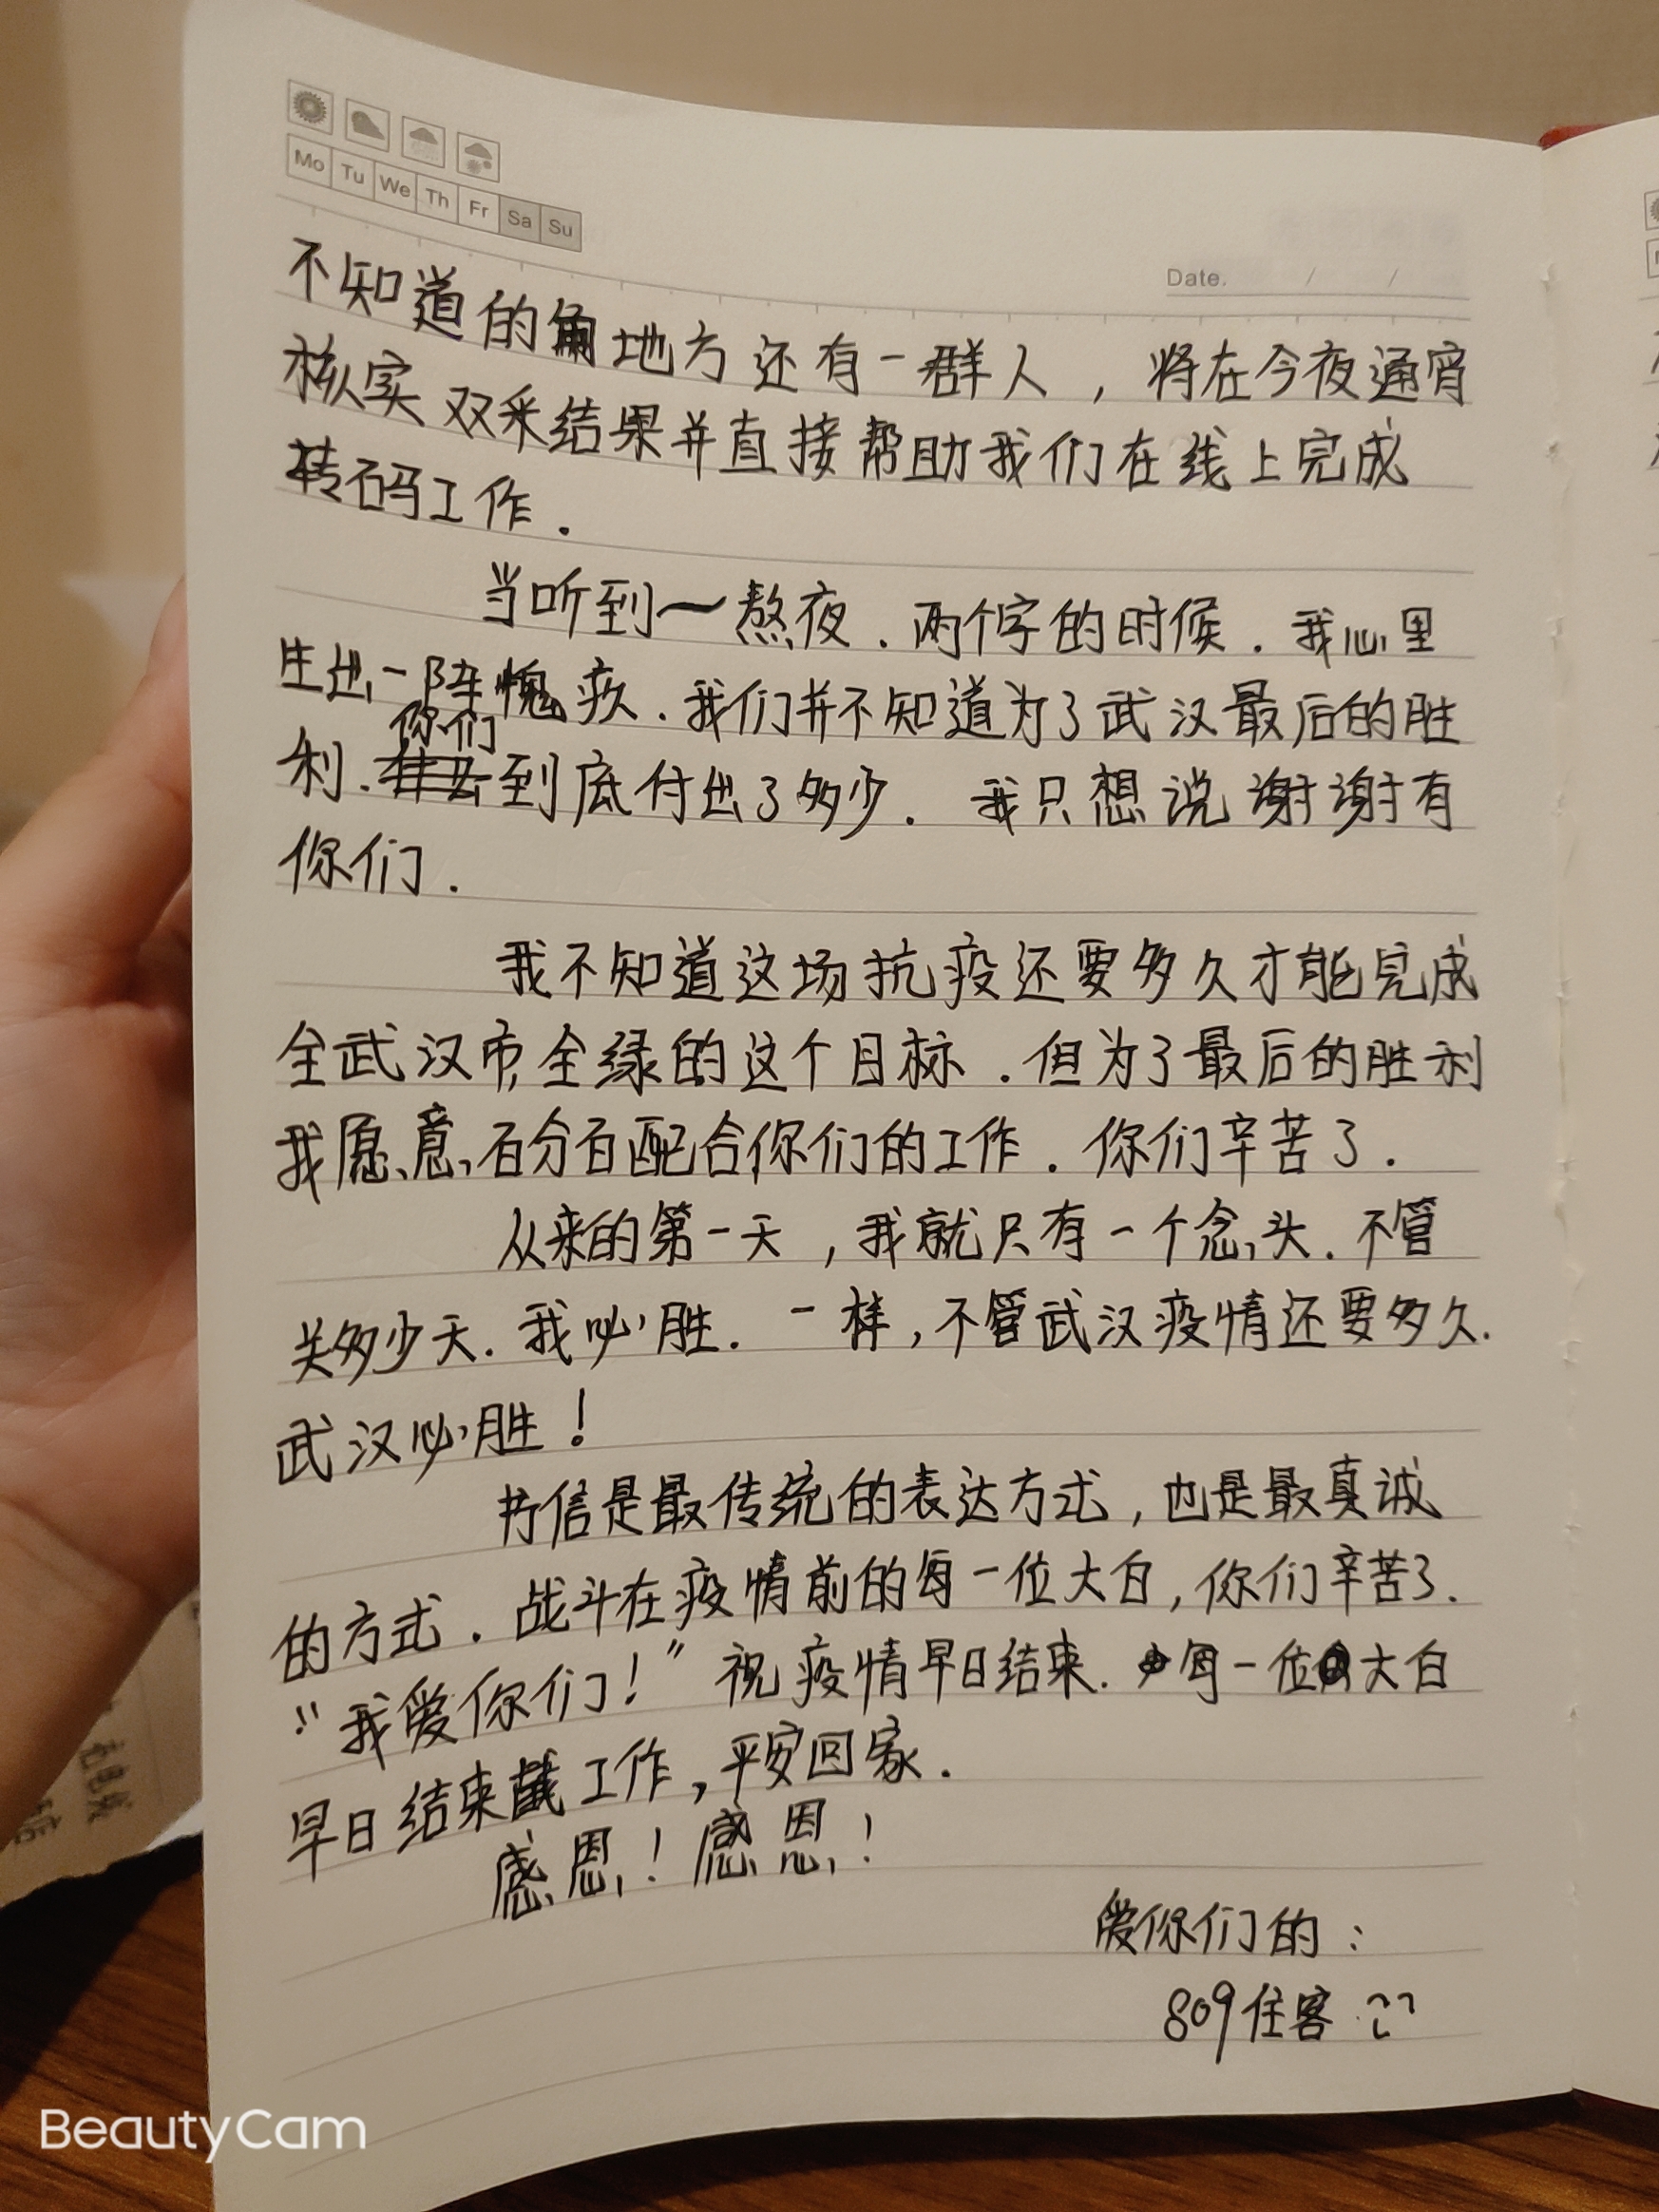 Mo Tu We Th Fr Sa Su
Date. / /
不知道的地方还有一群人，将在今夜通宵
核实双采结果并直接帮助我们在线上完成
转码工作.
当听到一熬夜.两个字的时候.我心里
生出一阵愧疚.我们并不知道为了武汉最后的胜
利.你们到底付出了多少.我只想说谢谢有
你们.
我不知道这场抗疫还要多久才能完成
全武汉市全绿的这个目标.但为了最后的胜利
我愿意百分百配合你们的工作.你们辛苦了.
从来的第一天，我就只有一个念头.不管
关多少天.我必胜.一样，不管武汉疫情还要多久.
武汉必胜！
书信是最传统的表达方式，也是最真诚
的方式.战斗在疫情前的每一位大白，你们辛苦了.
“我爱你们！”祝疫情早日结束.每一位大白
早日结束工作，平安回家.
感恩！感恩！
爱你们的：
809住客
BeautyCam